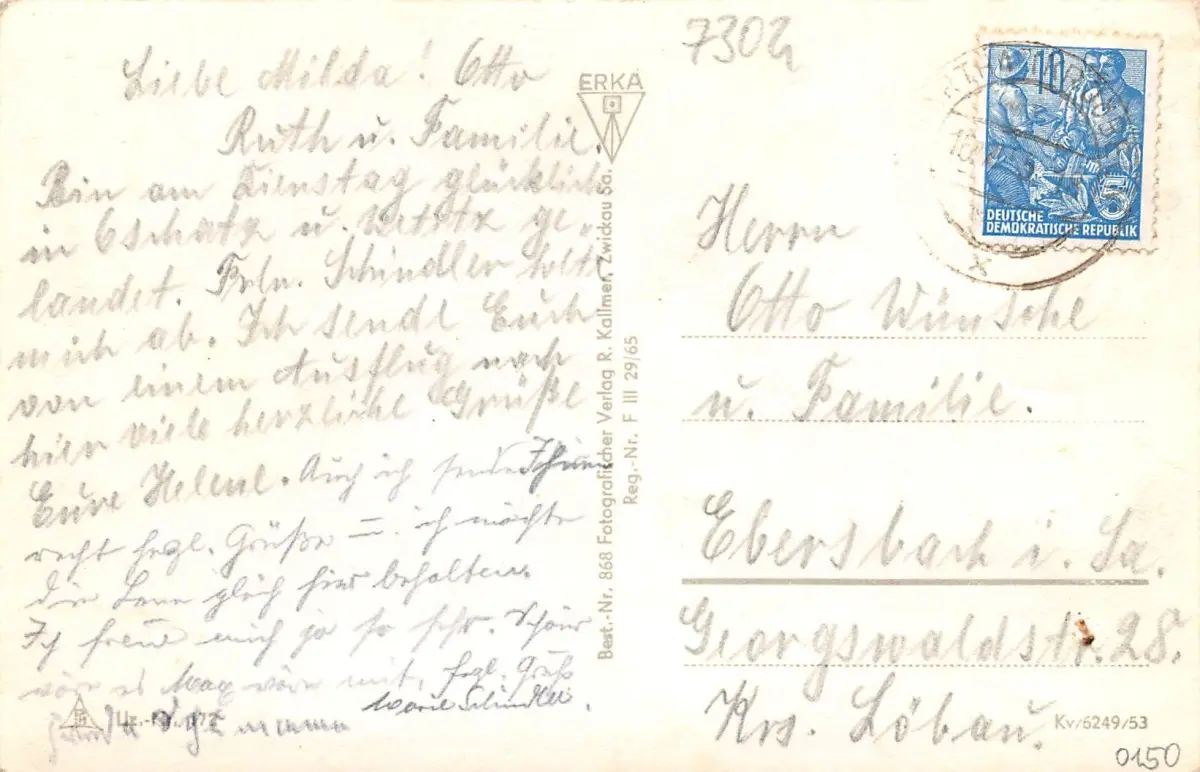 Liebe Milda! Otto
Ruth u. Familie.
Bin am Dienstag glücklich
in Oschatz u. ge-
landet. Frln. Schindler holte
mich ab. Ich sende Euch
von einem Ausflug nach
hier viele herzliche Grüße
Eure Helene. Auch ich sende Ihnen
recht hrzl. Grüße ich möchte
die Lene gleich hier behalten.
Ich freue mich ja so sehr. Schön
wär es Max wäre mit. hrzl. Grüß
Marie Schindler.
7302
ERKA
Best.-Nr. 868 Fotografischer Verlag R. Kallmer, Zwickau Sa.
Reg.-Nr. F III 29/65
10
5
DEUTSCHE
DEMOKRATISCHE REPUBLIK
Herrn
Otto Wünsche
u. Familie.
Ebersbach i. Sa.
Georgswaldstr. 28.
Krs. Löbau.
Kv/6249/53
0150